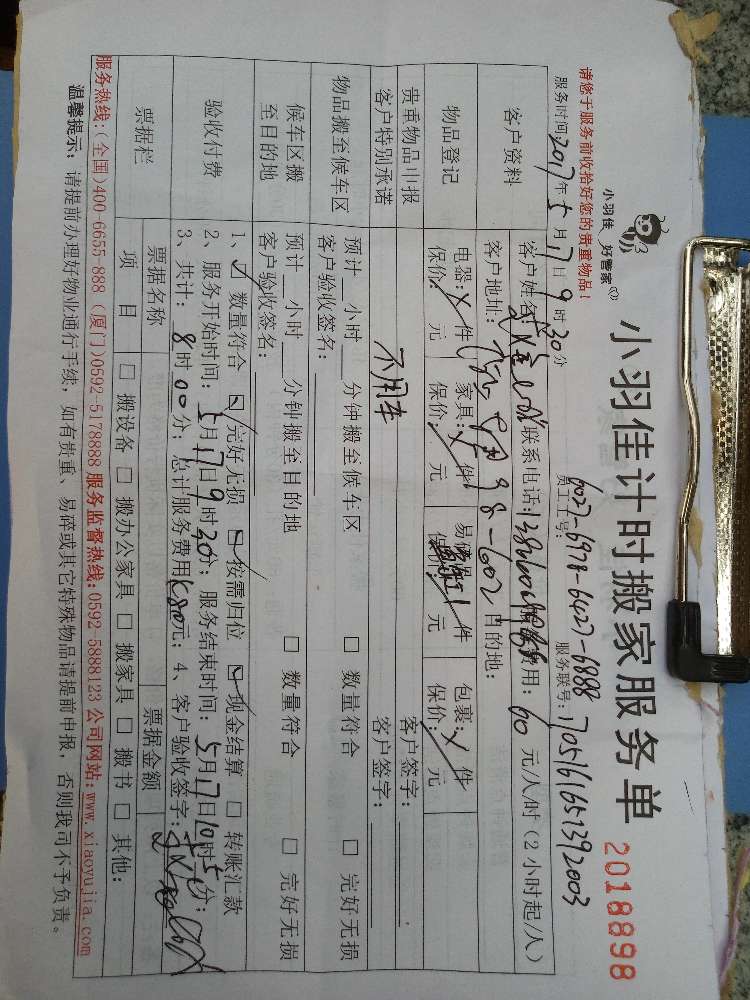 小羽佳 好管家
小羽佳计时搬家服务单 2018898
请您于服务前收拾好您的贵重物品！
6027-6978-6427-6888
服务时间2017年5月17日9时30分 员工工号： 服务联号：
客户资料
客户姓名 联系电话： 费用：60元/人/时（2小时起/人）
客户地址： 98-602 目的地：
物品登记
电器：X件 家具：X件 易 件 包裹：X件
保价： 元 保价： 元 元 保价： 元
贵重物品申报 客户签字：
客户特别承诺 不用车 客户签字：
物品搬至候车区
预计__小时__分钟搬至候车区 □ 数量符合 □ 完好无损
客户验收签名：
候车区搬至目的地
预计__小时__分钟搬至目的地 □ 数量符合 □ 完好无损
客户验收签名：
验收付费
1、☑ 数量符合 ☑ 完好无损 ☑ 按需归位 ☑ 现金结算 □ 转账汇款
2、服务开始时间：5月17日9时30分；服务结束时间：5月17日10时50分；
3、共计：8时00分；总计服务费用480元；4、客户验收签字：
票据栏
票据名称 票据金额
项 目 □ 搬设备 □ 搬办公家具 □ 搬家具 □ 搬书 □ 其他：
服务热线：(全国)400-6655-888 (厦门)0592-5178888 服务监督热线:0592-5888123 公司网站:www.xiaoyujia.com
温馨提示：请提前办理好物业通行手续，如有贵重、易碎或其它特殊物品请提前申报，否则我司不予负责。